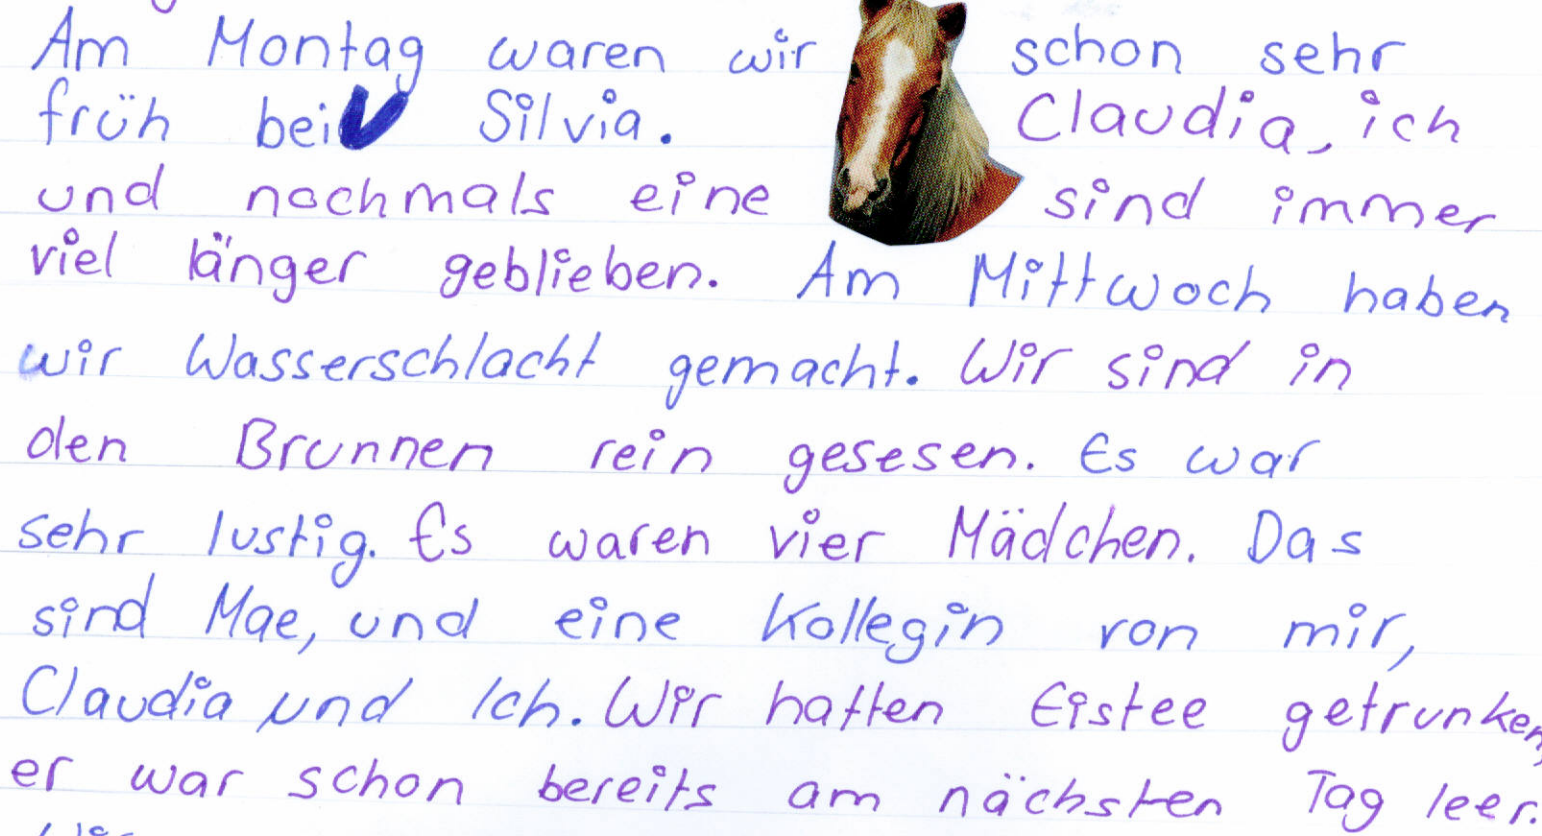 Am Montag waren wir schon sehr
früh bei Silvia. Claudia, ich
und nochmals eine sind immer
viel länger geblieben. Am Mittwoch haben
wir Wasserschlacht gemacht. Wir sind in
den Brunnen rein gesesen. Es war
sehr lustig. Es waren vier Mädchen. Das
sind Mae, und eine Kollegin von mir,
Claudia und Ich. Wir hatten Eistee getrunken,
er war schon bereits am nächsten Tag leer.